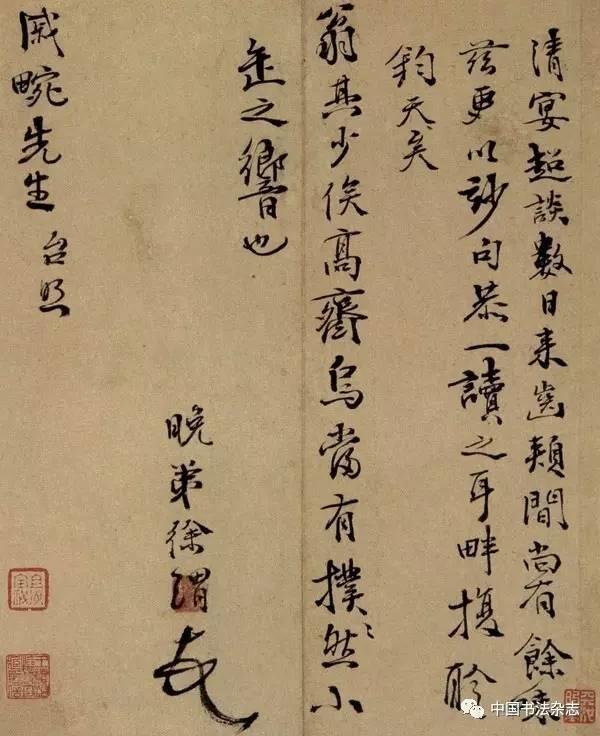 清宴超談數日来齒頰間尚有餘味
茲更以妙句恭一讀之耳畔撫聆
鈞天矣
翁其少俟高齋烏當有撲〻然小
缶之響也
晚弟徐渭
戚畹先生 台照
中国书法杂志